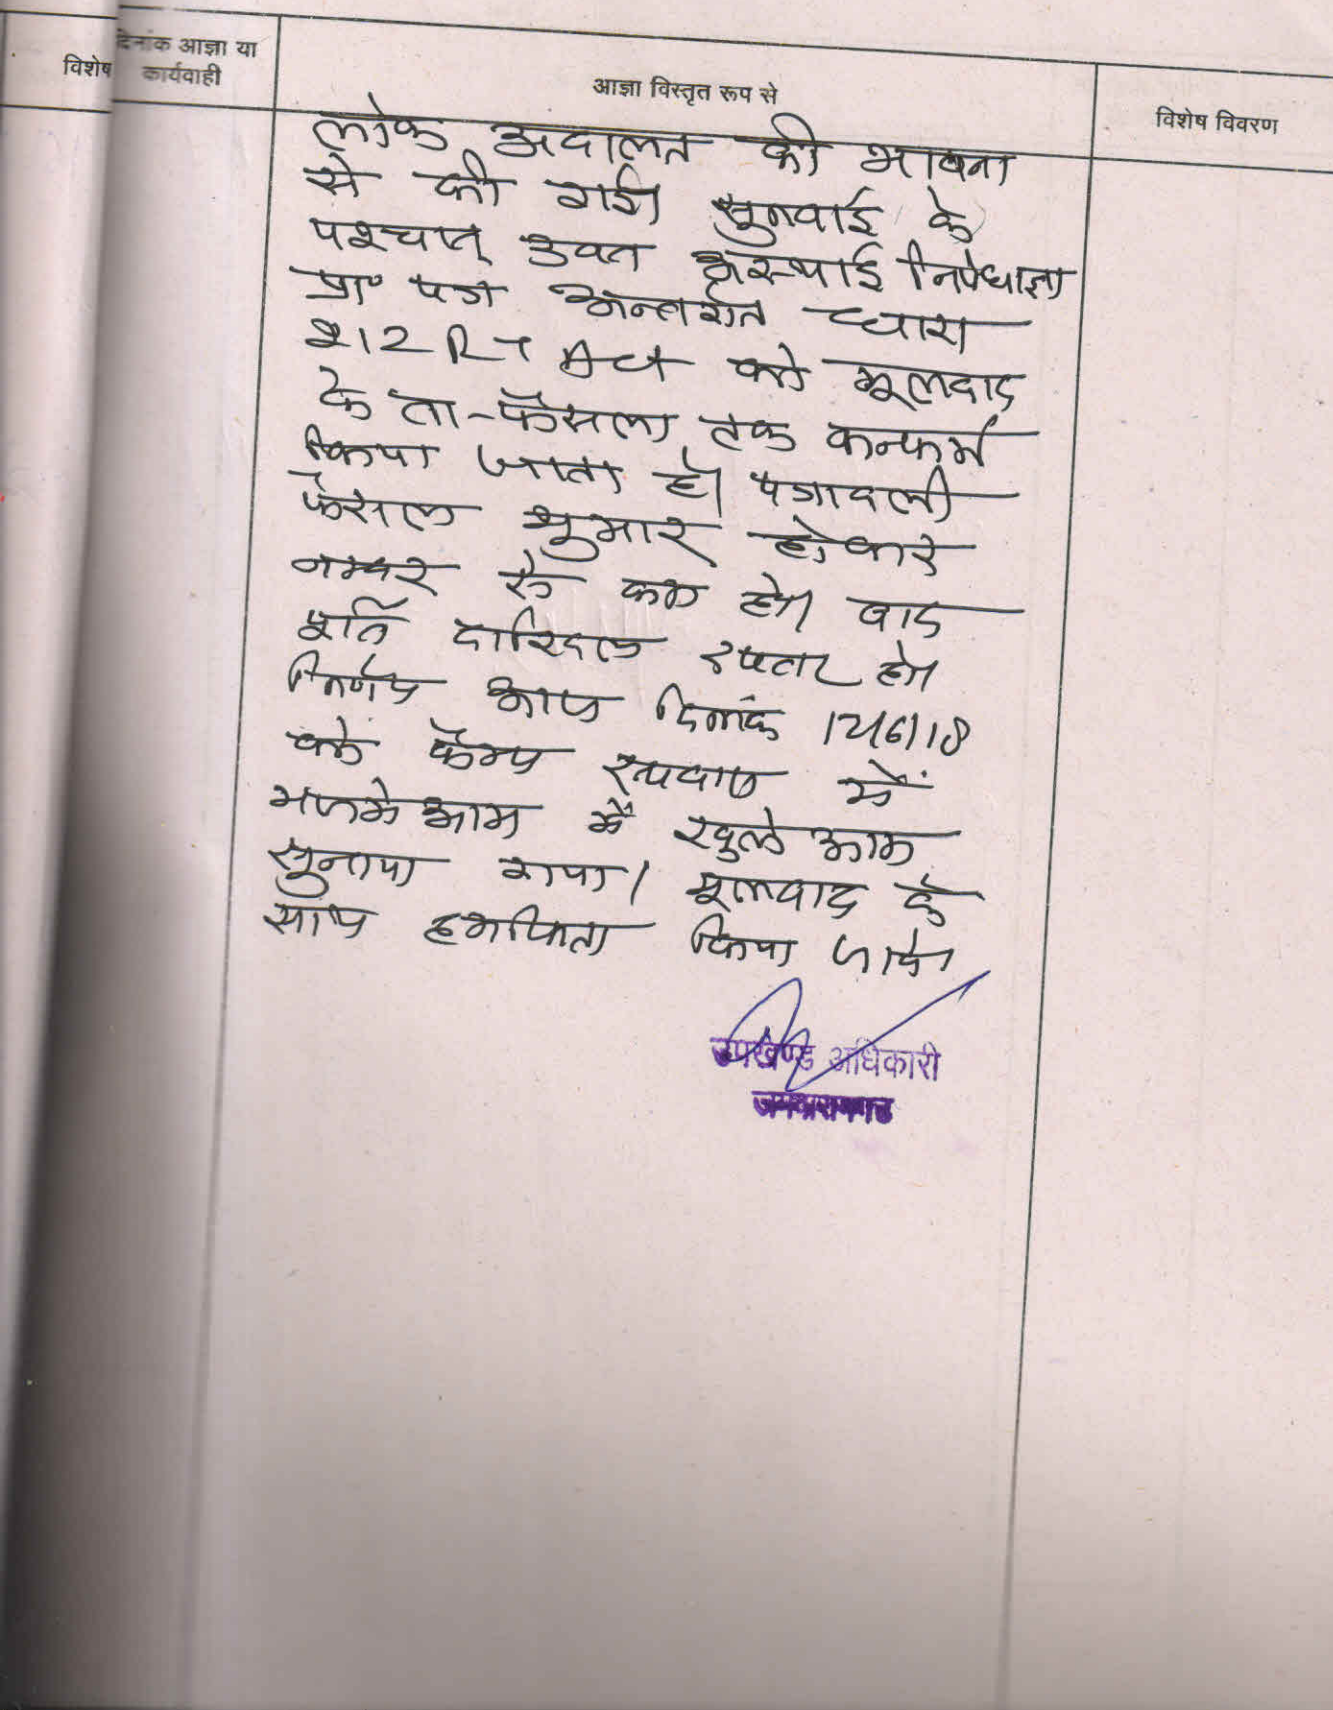 विशेष
दिनांक आज्ञा या
कार्यवाही
आज्ञा विस्तृत रूप से
विशेष विवरण
लोक अदालत की भावना
से की गई सुनवाई के
पश्चात् उक्त अस्थाई निषेधाज्ञा
प्रा० पत्र अन्तर्गत धारा
212 R T Act को मूलवाद
के ता-फैसला तक कन्फर्म
किया जाता है। पत्रावली
फैसल शुमार होकर
नम्बर से कम हो। बाद
पूर्ति दाखिल दफ्तर हो।
निर्णय आज दिनांक 12/6/18
को कैम्प में
मजमे आम में खुले आम
सुनाया गया। मूलवाद के
साथ किया जावे।
उपखण्ड अधिकारी
जमवारामगढ